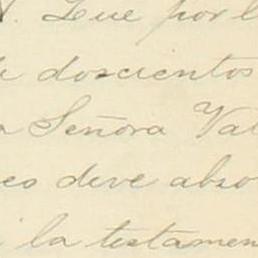 . Que por l
doscientos
a Señora Val
eo deve abso
i la testamen